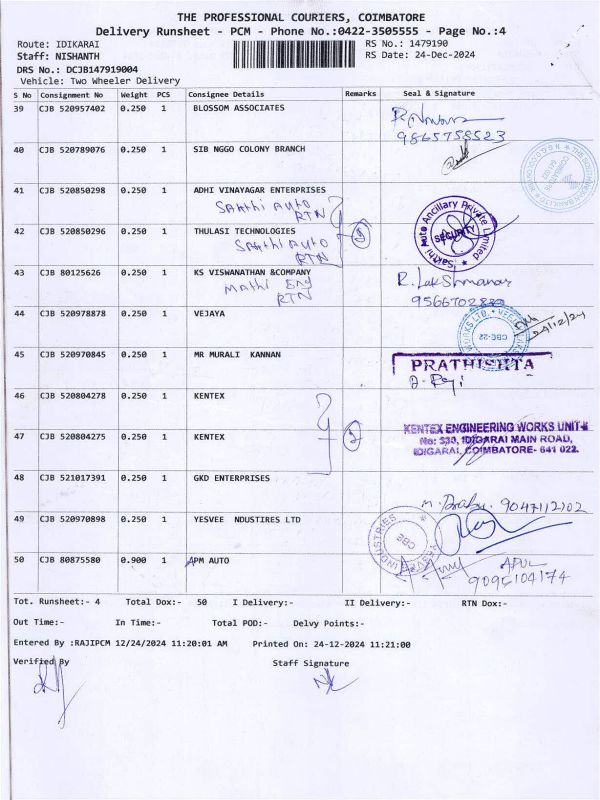 THE PROFESSIONAL COURIERS, COIMBATORE
Delivery Runsheet - PCM - Phone No.:0422-3505555 - Page No.:4
Route: IDIKARAI
RS No.: 1479190
Staff: NISHANTH
RS Date: 24-Dec-2024
DRS No.: DCJB147919004
Vehicle: Two Wheeler Delivery
S No Consignment No Weight PCS Consignee Details Remarks Seal & Signature
39 CJB 520957402 0.250 1 BLOSSOM ASSOCIATES
9865758523
40 CJB 520789076 0.250 1 SIB NGGO COLONY BRANCH
41 CJB 520850298 0.250 1 ADHI VINAYAGAR ENTERPRISES
Sakthi Auto
RTN
Sakthi Auto Ancillary Private Limited
SECURITY
42 CJB 520850296 0.250 1 THULASI TECHNOLOGIES
Sakthi Auto
RTN
43 CJB 80125626 0.250 1 KS VISWANATHAN &COMPANY
Mathi Eng
RTN
R. Lakshmanan
44 CJB 520978878 0.250 1 VEJAYA
CBE-22
24/12/24
45 CJB 520970845 0.250 1 MR MURALI KANNAN
PRATHISHTA
46 CJB 520804278 0.250 1 KENTEX
47 CJB 520804275 0.250 1 KENTEX
KENTEX ENGINEERING WORKS UNIT-II
No: 330, IDIGARAI MAIN ROAD,
IDIGARAI, COIMBATORE- 641 022.
48 CJB 521017391 0.250 1 GKD ENTERPRISES
9047112102
49 CJB 520970898 0.250 1 YESVEE NDUSTIRES LTD
INDUSTRIES
CBE
50 CJB 80875580 0.900 1 APM AUTO
9095104174
Tot. Runsheet:- 4 Total Dox:- 50 I Delivery:- II Delivery:- RTN Dox:-
Out Time:- In Time:- Total POD:- Delvy Points:-
Entered By :RAJIPCM 12/24/2024 11:20:01 AM Printed On: 24-12-2024 11:21:00
Verified By Staff Signature